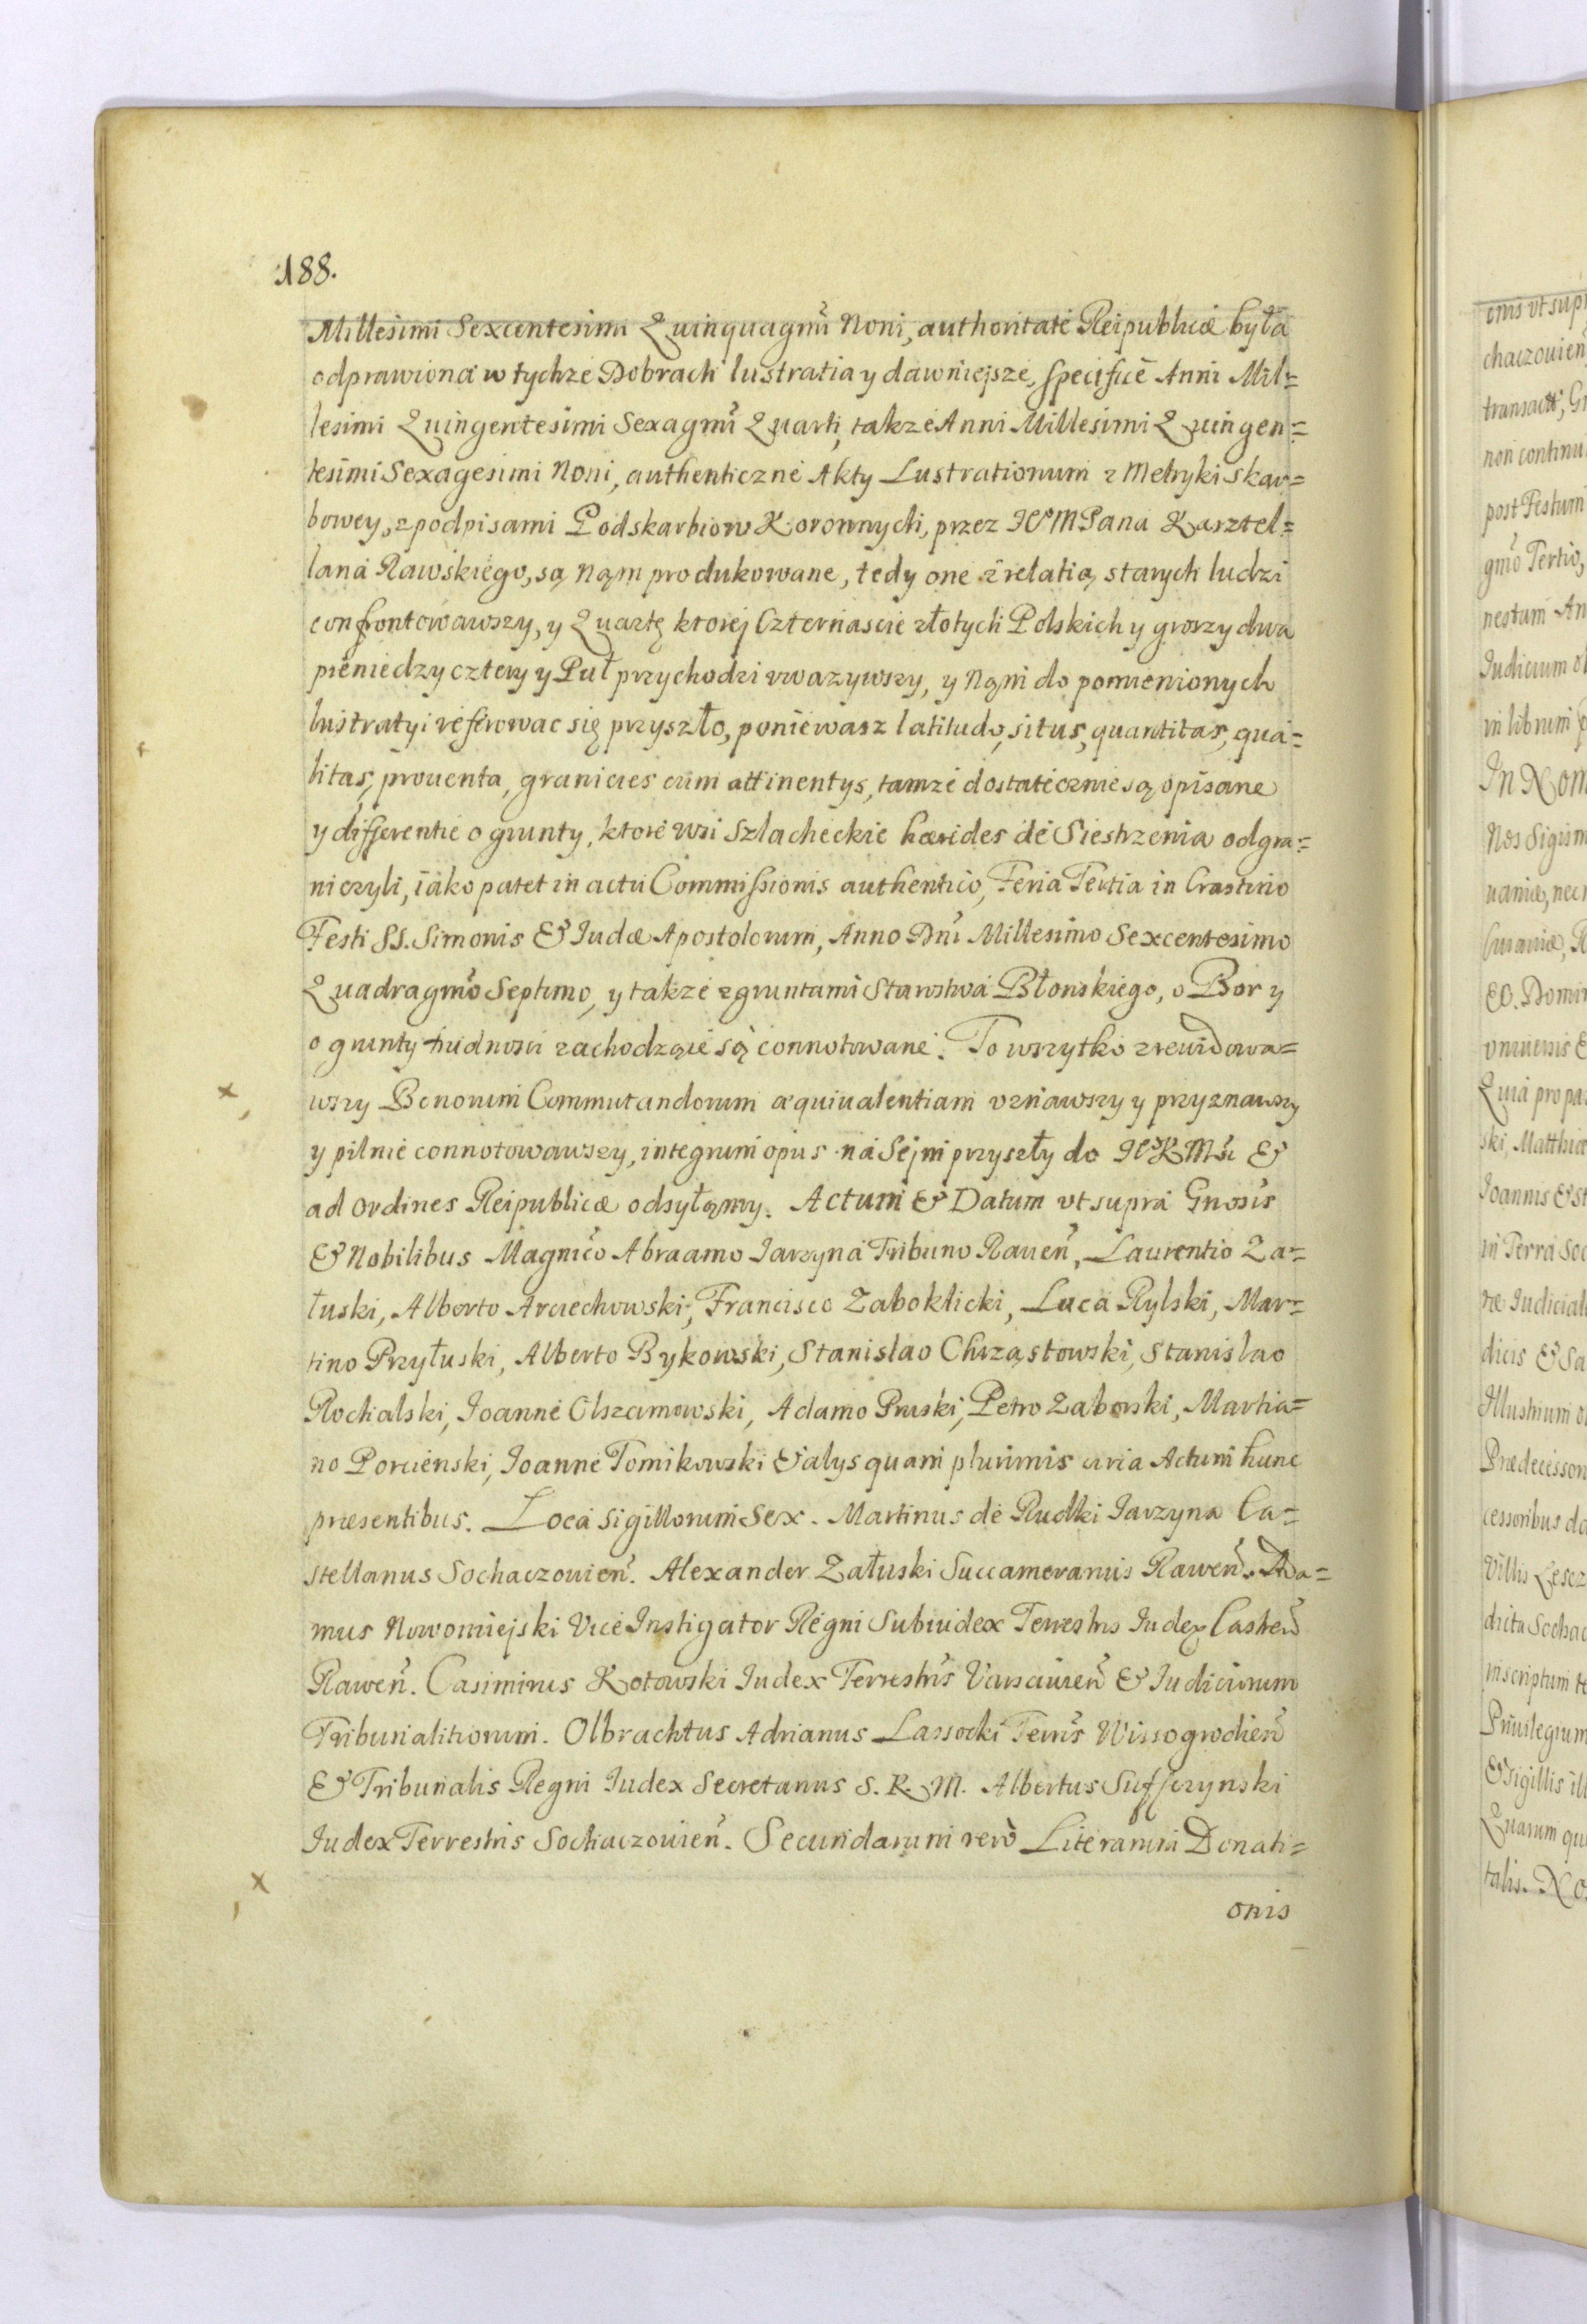 188.
Millesimi Sexcentesimi Quinquagmi Noni, authoritate Reipublicæ była
odprawiona w tychże Dobrach lustratia y dawniejsze, specifice Anni Mil=
lesimi Quingentesimi Sexagmi Quarti, także Anni Millesimi Quingen=
tesimi Sexagesimi Noni, authenticzne Akty Lustrationum z Metryki Skar=
bowey, z podpisami Podskarbiow Koronnych, przez JeoMPana Kasztel=
lana Rawskiego, są nąm produkowane, tedy one z relatią starych ludzi
confrontowawszy, y Quartę ktorej Czternascie złotych Polskich y groszy dwa
pieniedzy cztery y Puł przychodzi uwazywszy, y nąm do pomienionych
lustratyi referowac się przyszło, poniewasz latitudo, situs, quantitas, qua=
litas, prouenta, granicies cum attinentys, tamze dostatecznie są opisane
y differentie o grunty, ktore wsi Szlacheckie hærides de Siestrzenia odgra=
niczyli, iako patet in actu Commissionis authentico, Feria Tertia in Crastino
Festi SS. Simonis & Iudæ Apostolorum, Anno Dni Millesimo Sexcentesimo
Quadragmo Septimo, y także z gruntami Starostwa Błonskiego, o Bor y
o grunty trudnosci zachodzące są connotowane. To wszytko zrewidowa=
wszy Bonorum Commutandorum æquiualentiam uznawszy y przyznawszy
y pilnie connotowawszy, integrum opus na Sejm przyszły do JeoKMsci &
ad ordines Reipublicæ odsyłąmy. Actum & Datum vt supra Gnosis
& Nobilibus Magnico Abraamo Iarzyna Tribuno Rauen, Laurentio Za=
łuski, Alberto Arciechowski, Francisco Zaboklicki, Luca Rylski, Mar=
tino Przyłuski, Alberto Bykowski, Stanislao Chrząstowski, Stanislao
Rochalski, Joanne Olszamowski, Adamo Pruski, Petro Zaborski, Martia=
no Porcienski, Joanne Tomikowski & alys quam plurimis circa Actum hunc
præsentibus. Loca Sigillorum Sex. Martinus de Rudki Jarzyna Ca=
stellanus Sochaczouien. Alexander Załuski Succamerarius Rawen. Ada=
mus Nowomiejski Vice Instigator Regni Subiudex Terrestris Iudex Castren
Rawen. Casimirus Kotowski Iudex Terrestris Varsauien & Iudiciorum
Tribunalitiorum. Olbrachtus Adrianus Lassocki Terris Wissogrodien
& Tribunalis Regni Iudex Secretarius S. R. M. Albertus Suffczynski
Iudex Terrestris Sochaczouien. Secundarum vero Literarum Donati=
onis